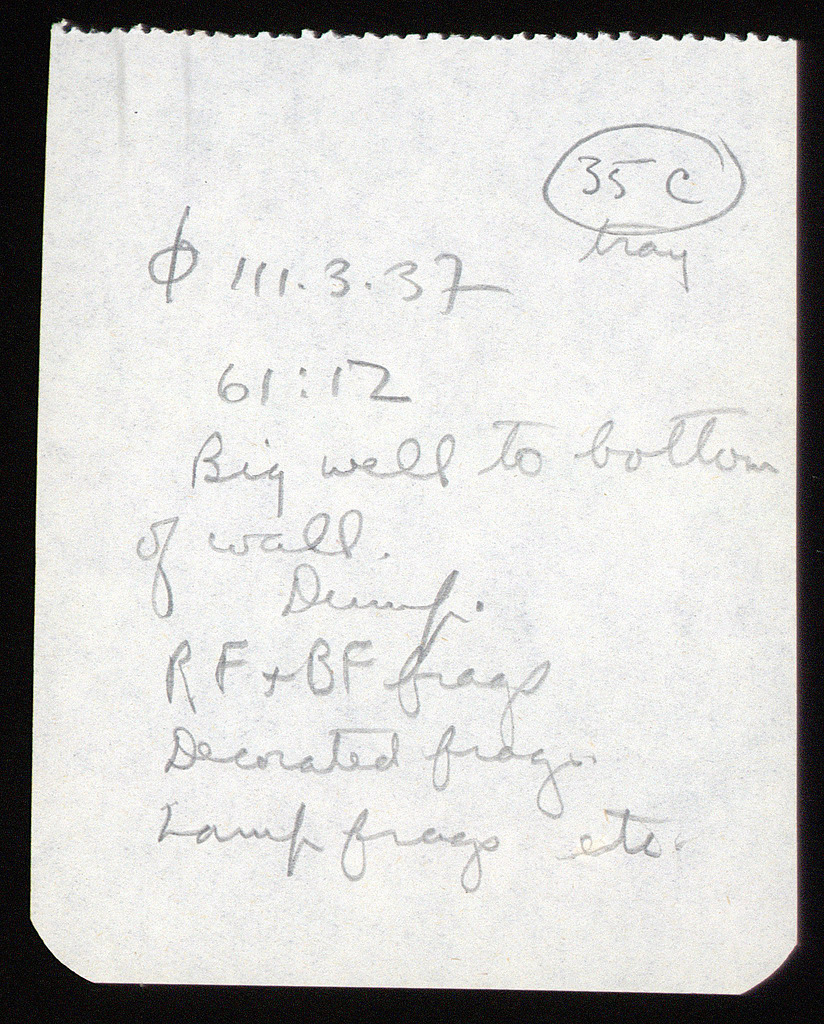 35 C
tray
Φ 111.3.37
61:12
Big well to bottom
of wall.
Dump.
RF + BF frags
Decorated frags.
Lamp frags etc.